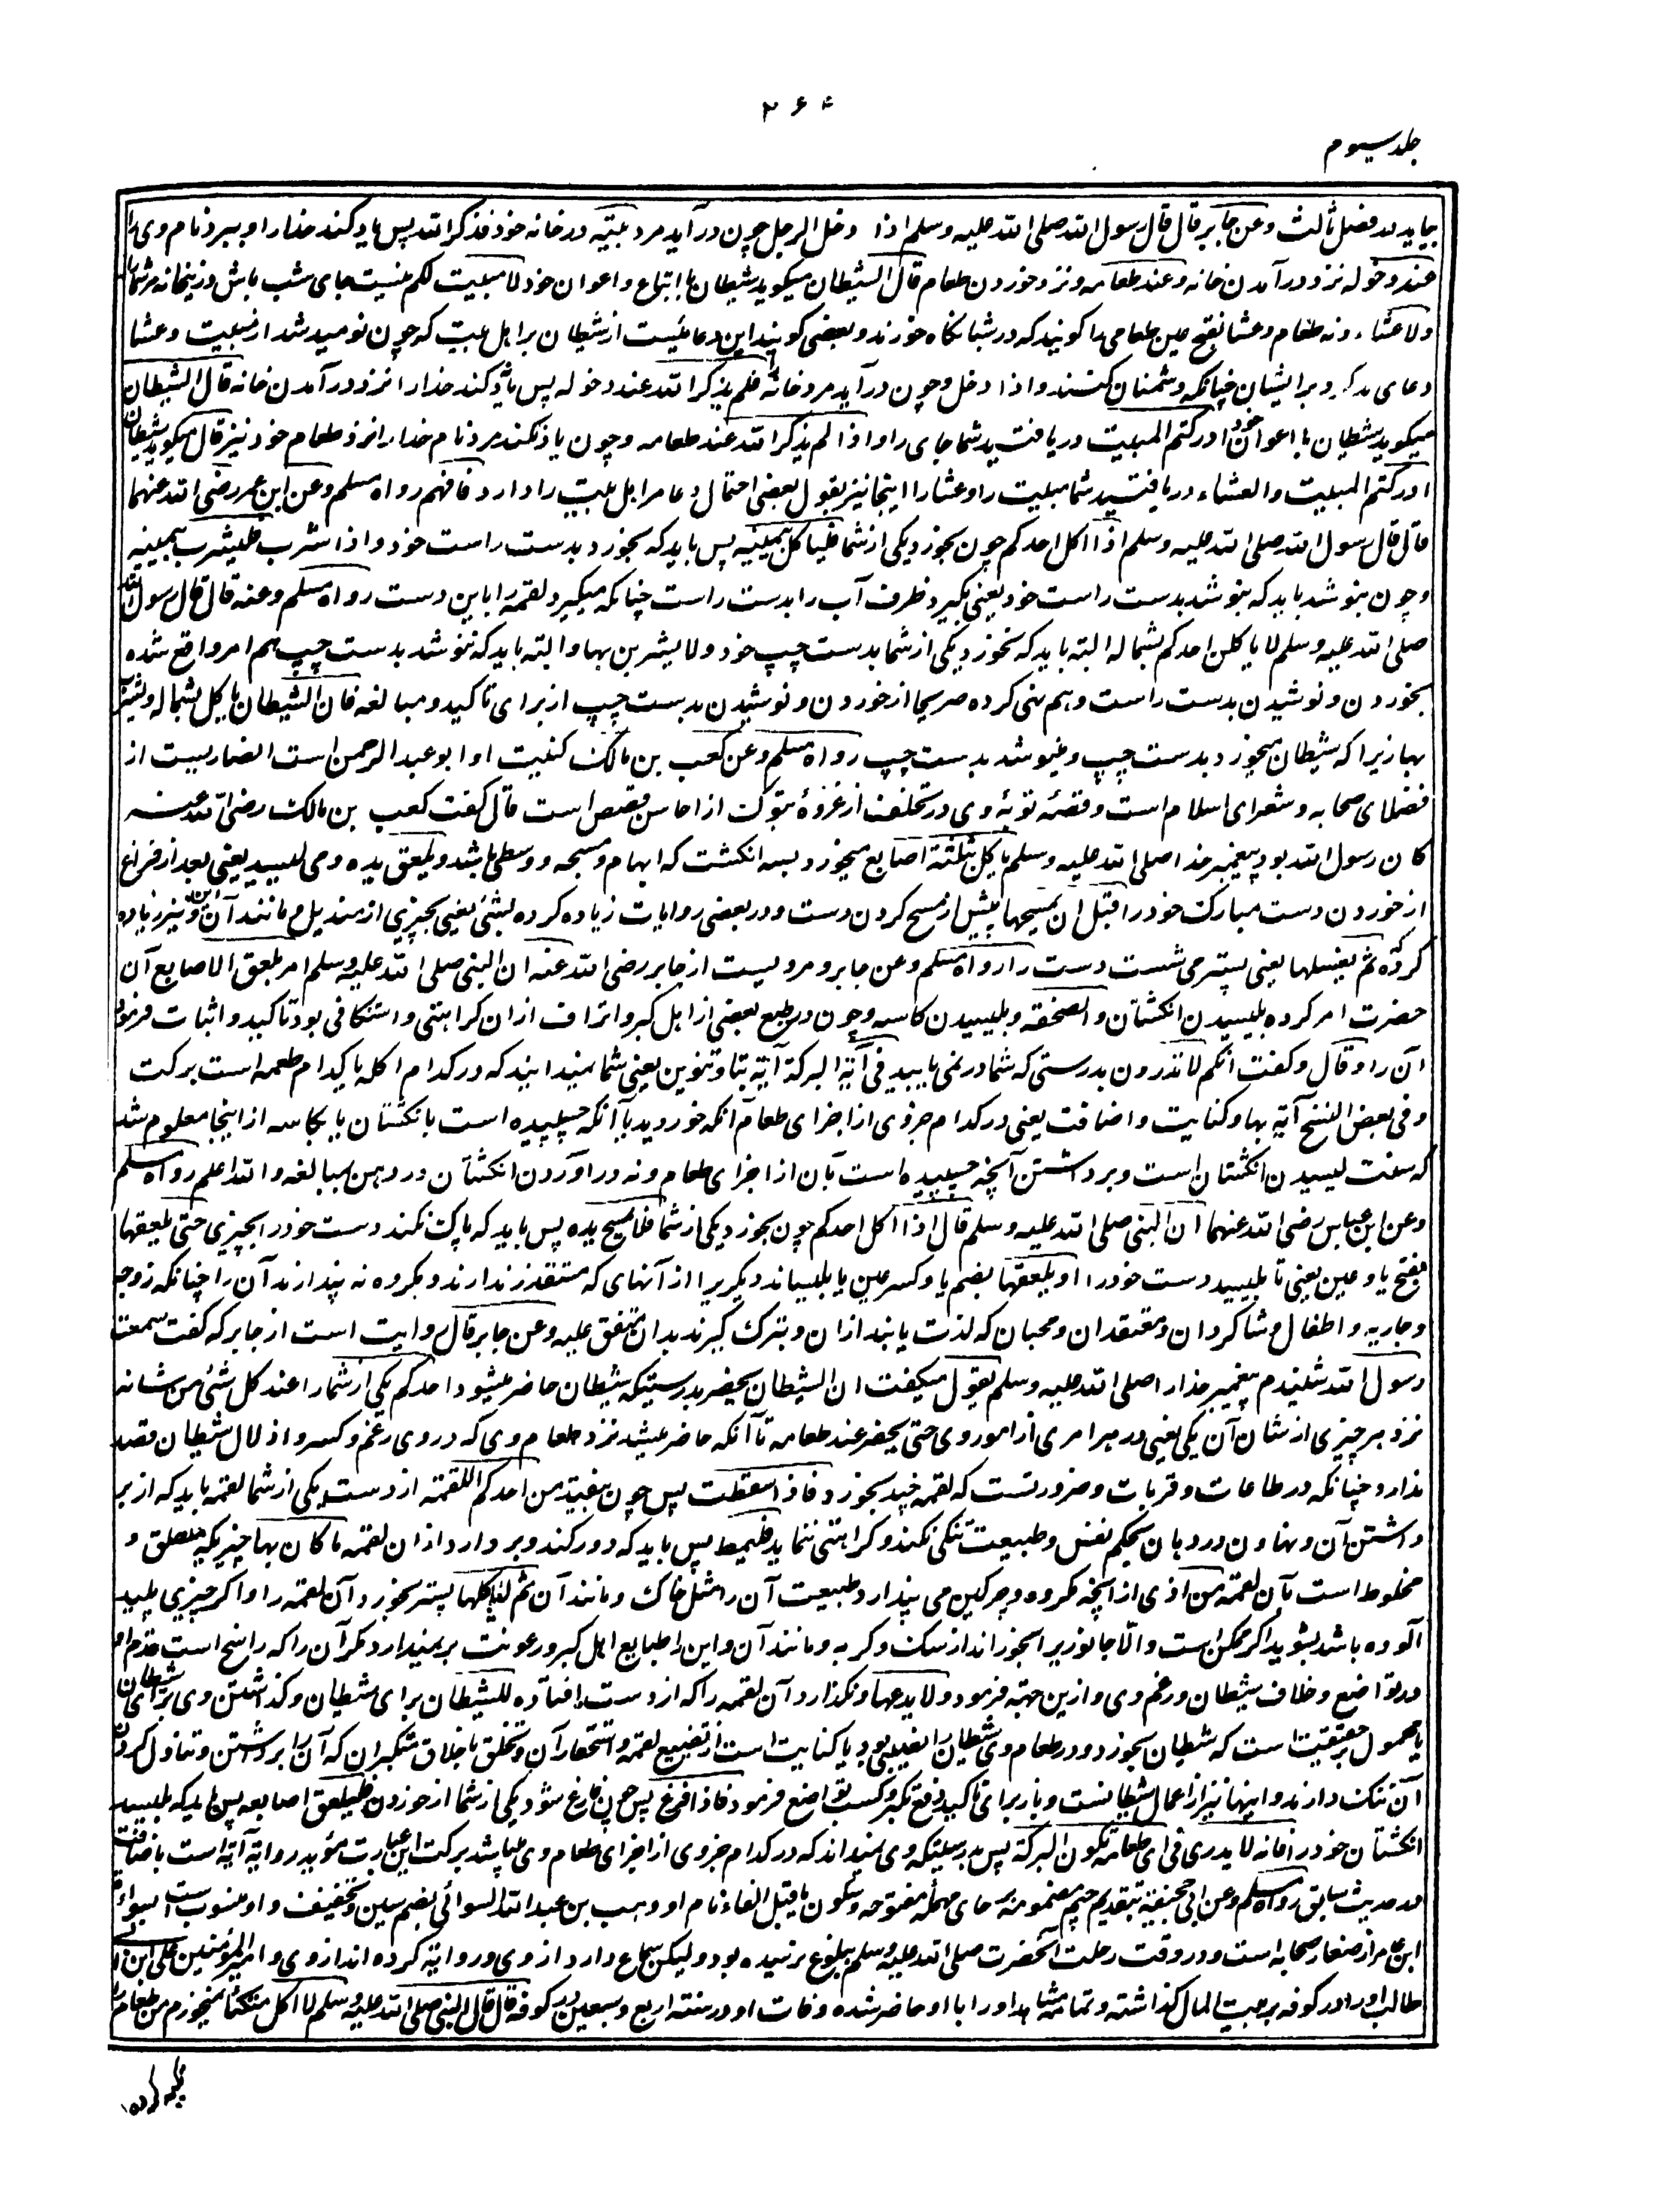 ۲۶۴
جلد سیوم
بیاید در فصل ثالث وعن جابر قال قال رسول الله صلی الله علیه وسلم اذا دخل الرجل چون در آید مرد بیته در خانه خود فذکر الله پس یاد کند خدا را و ببرد نام وی را
عند دخوله نزد در آمدن خانه وعند طعامه و نزد خوردن طعام قال الشیطان میگوید شیطان با اتباع و اعوان خود لا مبیت لکم نیست جای شب باش در ینخانه مر شما را
ولا عشاء و نه طعام و عشا بفتح عین طعامی را گویند که در شبانگاه خورند و بعضی گویند این دعائیست از شیطان بر اهل بیت که چون نومید شد از مبیت و عشا
دعای بد کرد بر ایشان چنانکه دشمنان کنند و اذا دخل و چون در آید مرد خانه را فلم یذکر الله عند دخوله پس یاد نکند خدا را نزد در آمدن خانه قال الشیطان
میگوید شیطان با اعوان خود ادرکتم المبیت دریافتید شما جای را و اذا لم یذکر الله عند طعامه و چون یاد نکند مرد نام خدا را نزد طعام خود نیز قال میگوید شیطان
ادرکتم المبیت والعشاء دریافتید شما مبیت را و عشا را اینجا نیز بقول بعضی احتمال دعا مر اهل بیت را دارد فافهم رواه مسلم وعن ابن عمر رضی الله عنهما
قال قال رسول الله صلی الله علیه وسلم اذا اکل احدکم چون بخورد یکی از شما فلیاکل بیمینه پس باید که بخورد بدست راست خود و اذا شرب فلیشرب بیمینه
و چون بنوشد باید که بنوشد بدست راست خود یعنی بگیرد ظرف آب را بدست راست چنانکه میگیرد لقمه را باین دست رواه مسلم وعنه قال قال رسول الله
صلی الله علیه وسلم لا یاکلن احدکم بشماله البته باید که نخورد یکی از شما بدست چپ خود ولا یشربن بها و البته باید که ننوشد بدست چپ هم امر واقع شده
بخوردن و نوشیدن بدست راست و هم نهی کرده صریحا از خوردن و نوشیدن بدست چپ از برای تاکید و مبالغه فان الشیطان یاکل بشماله ویشرب
بها زیرا که شیطان میخورد بدست چپ و مینوشد بدست چپ رواه مسلم وعن کعب بن مالک کنیت او ابو عبد الرحمن است انصاریست از
فضلای صحابه و شعرای اسلام است و قصه توبه وی در تخلف از غزوه تبوک از احاسن قصص است قال گفت کعب بن مالک رضی الله عنه
کان رسول الله بود پیغمبر خدا صلی الله علیه وسلم یاکل بثلثة اصابع میخورد بسه انگشت که ابهام و مسبحه و وسطی باشد ویلعق یده و می لیسید یعنی بعد از فراغ
از خوردن دست مبارک خود را قبل ان یمسحها پیش از مسح کردن دست و در بعضی روایات زیاده کرده بشئ یعنی بچیزی از مندیل و مانند آن و این نیز زیاده
کرده که ثم یغسلها یعنی پستر می شست دست را رواه مسلم وعن جابر و مرویست از جابر رضی الله عنه ان النبی صلی الله علیه وسلم امر بلعق الاصابع آن
حضرت امر کرده بلیسیدن انگشتان والصحفة و بلیسیدن کاسه و چون در طبع بعضی از اهل کبر و اتراف ازان کراهتی و استنکافی بود تاکید و اثبات فرمود
آن را وقال و گفت انکم لا تدرون بدرستی که شما در نمی یابید فی آیة البرکة آیة بتا و تنوین یعنی شما نمیدانید که در کدام اکله یا کدام طعمه است برکت
و فی بعض النسخ آیه بها و کنایت و اضافت یعنی در کدام جزوی از اجزای طعام آنکه خوردید یا آنکه چسپیده است بانگشتان یا بکاسه از اینجا معلوم شد
که سنت لیسیدن انگشتان است و برداشتن آنچه چسپیده است بآن از اجزای طعام و نه در آوردن انگشتان در دهن بمبالغه والله اعلم رواه مسلم
وعن ابن عباس رضی الله عنهما ان النبی صلی الله علیه وسلم قال اذا اکل احدکم چون بخورد یکی از شما فلا یمسح یده پس باید که پاک نکند دست خود را بچیزی حتی یلعقها
بفتح یا و عین یعنی تا بلیسد دست خود را او یلعقها بضم یا و کسر عین یا بلیساند دیگریرا از آنهای که مستقذر ندارند و مکروه نه پندارند آن را چنانکه زوجه
و جاریه و اطفال و شاگردان و معتقدان و محبان که لذت یابند ازان و تبرک گیرند بدان متفق علیه وعن جابر قال روایت است از جابر که گفت سمعت
رسول الله شنیدم پیغمبر خدا را صلی الله علیه وسلم یقول میگفت ان الشیطان یحضر بدرستیکه شیطان حاضر میشود احدکم یکی از شما را عند کل شئ من شانه
نزد هر چیزی از شان آن یکی یعنی در هر امری از امور وی حتی یحضر عند طعامه تا آنکه حاضر میشد نزد طعام وی که در وی رغم و کسر و اذلال شیطان قصد
ندارد چنانکه در طاعات و قربات و ضرورتست که لقمه چند بخورد فاذا سقطت پس چون بیفتد من احدکم اللقمة از دست یکی از شما لقمه باید که از بر
داشتن آن و نهادن در دهان بحکم نفس و طبیعت ننگی نکند و کراهتی ننماید فلیمط پس باید که دور کند و بر دارد ازان لقمه ما کان بها چیزیکه متعلق و
مخلوط است بآن لقمه من اذی از آنچه مکروه و چرکین می پندارد طبیعت آن را مثل خاک و مانند آن ثم لیاکلها پستر بخورد آن لقمه را و اگر چیزی پلید
آلوده باشد بشوید اگر ممکن است و الا جانوریرا بخوراند از سگ و گربه و مانند آن و این را طبایع اهل کبر و رعونت بر نمیدارد مگر آن را که راسخ است قدم او
در تواضع و خلاف شیطان و رغم وی و ازین جهته فرمود ولا یدعها و نگذارد آن لقمه را که از دست افتاده للشیطان برای شیطان و گذاشتن وی برای شیطان
یا محمول بر حقیقت است که شیطان بخورد و در طعام وی شیطان را نصیبی بود یا کنایت است از تضییع لقمه و استحقار آن و تخلق باخلاق متکبران که آن را برداشتن و تناول کردن
آن ننگ دارند و اینها نیز از اعمال شیطانست و باز برای تاکید دفع تکبر و کسب تواضع فرمود فاذا فرغ پس چون فارغ شود یکی از شما از خوردن فلیلعق اصابعه پس باید که بلیسد
انگشتان خود را فانه لا یدری فی ای طعامه یکون البرکة پس بدرستیکه وی نمیداند که در کدام جزوی از اجزای طعام وی میباشد برکت این عبارت مؤید روایة آیه است باضافت
در حدیث سابق رواه مسلم وعن ابی جحیفة بتقدیم جیم مضمومه بر حای مهمله مفتوحه و سکون یا قبل الفاء نام او وهب بن عبد الله السوائی بضم سین و تخفیف واو منسوب است بسواءة
ابن عامر از صغار صحابه است و در وقت رحلت آنحضرت صلی الله علیه وسلم ببلوغ نرسیده بود ولیکن سماع دارد از وی و روایة کرده اند از وی و امیر المؤمنین علی ابن ابی
طالب او را در کوفه بر بیت المال گذاشته و تمامه مشاهد او را با او حاضر شده وفات او در سنة اربع و سبعین در کوفه قال قال النبی صلی الله علیه وسلم لا آکل متکئا نمیخورم من طعام را